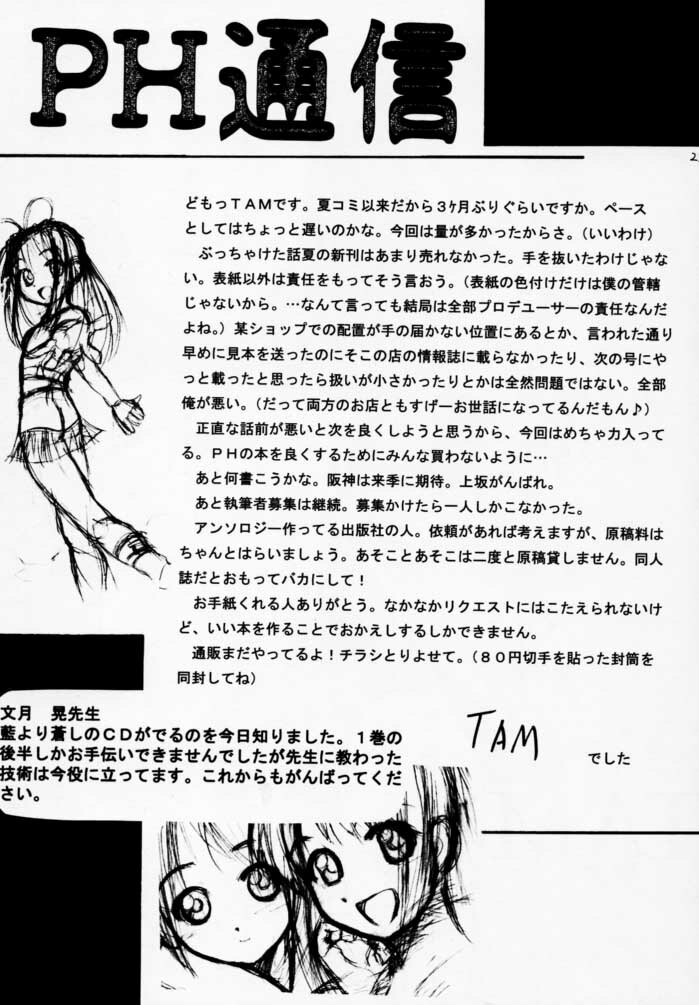 PH通信
2
どもっTAMです。夏コミ以来だから3ヶ月ぶりぐらいですか。ペース
としてはちょっと遅いのかな。今回は量が多かったからさ。(いいわけ)
ぶっちゃけた話夏の新刊はあまり売れなかった。手を抜いたわけじゃな
い。表紙以外は責任をもってそう言おう。(表紙の色付けだけは僕の管轄
じゃないから。…なんて言っても結局は全部プロデューサーの責任なんだ
よね。)某ショップでの配置が手の届かない位置にあるとか、言われた通り
早めに見本を送ったのにそこの店の情報誌に載らなかったり、次の号にや
っと載ったと思ったら扱いが小さかったりとかは全然問題ではない。全部
俺が悪い。(だって両方のお店ともすげーお世話になってるんだもん♪)
正直な話前が悪いと次を良くしようと思うから、今回はめちゃ力入って
る。PHの本を良くするためにみんな買わないように…
あと何書こうかな。阪神は来季に期待。上坂がんばれ。
あと執筆者募集は継続。募集かけたら一人しかこなかった。
アンソロジー作ってる出版社の人。依頼があれば考えますが、原稿料は
ちゃんとはらいましょう。あそことあそこは二度と原稿貸しません。同人
誌だとおもってバカにして!
お手紙くれる人ありがとう。なかなかリクエストにはこたえられないけ
ど、いい本を作ることでおかえしするしかできません。
通販まだやってるよ!チラシとりよせて。(80円切手を貼った封筒を
同封してね)
TAM
でした
文月 晃先生
藍より蒼しのCDがでるのを今日知りました。1巻の
後半しかお手伝いできませんでしたが先生に教わった
技術は今役に立ってます。これからもがんばってくだ
さい。